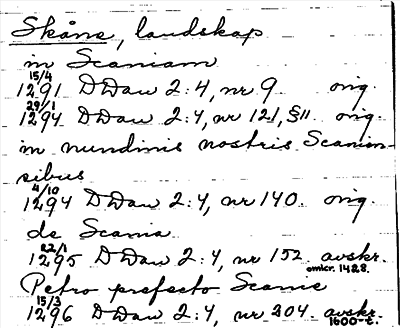 Skåne, landskap
in Scaniam
15/4
1291 DDan 2:4, nr 9 orig.
29/1
1294 DDan 2:4, nr 121, §11 orig.
in nundinis nostris Scanien-
sibus
4/10
1294 DDan 2:4, nr 140. orig.
de Scania
22/1
1295 DDan 2:4, nr 152 avskr.
omkr. 1428.
Petro prefecto Scanie
15/3
1296 DDan 2:4, nr 204. avskr.
1600-t.